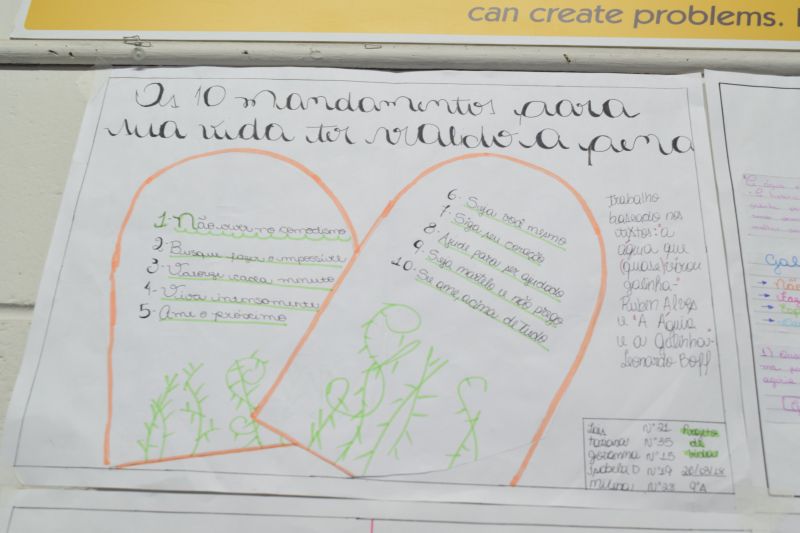 can create problems.
Os 10 mandamentos para
sua vida ter valido a pena
1- Não viva no comodismo
2- Busque faça o impossível
3- Valorize cada minuto
4- Viva intensamente
5- Ame o próximo
6- Seja você mesmo
7- Siga seu coração
8- Ajude para ser ajudado
9- Seja martelo e não prego
10- Se ame acima de tudo
Trabalho
baseado nos
textos: "a
águia que
(quase) virou
galinha"
Rubem Alves
e "A Águia
e a Galinha"
Leonardo Boff
Laís Nº 21 Projetos
Tatiana Nº 35 de
Giovanna Nº 15 Vida
Isabela D Nº 19
Milena Nº 23 9ºA